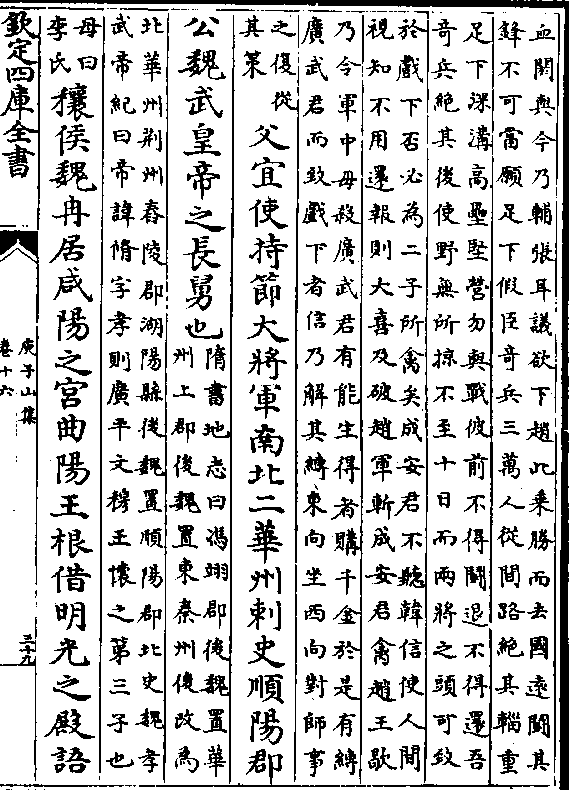 血閼與今乃輔張耳議欲下趙此乘勝而去國遠鬭其
鋒不可當願足下假臣奇兵三萬人從間路絶其輜重
足下深溝高壘堅營勿與戰彼前不得鬭退不得還吾
奇兵絶其後使野無所掠不至十日而兩將之頭可致
於戲下否必為二子所禽矣成安君不聽韓信使人間
視知不用還報則大喜及破趙軍斬成安君禽趙王歇
乃令軍中毋殺廣武君有能生得者購千金於是有縛
廣武君而致戲下者信乃解其縛東向坐西向對師事
之復從
其策
父宜使持節大將軍南北二華州刺史順陽郡
公魏武皇帝之長舅也
隋書地志曰馮翊郡後魏置華
州上郡後魏置東秦州後改為
北華州荆州舂陵郡湖陽縣後魏置順陽郡北史魏孝
武帝紀曰帝諱脩字孝則廣平文穆王懷之第三子也
母曰
李氏
穰侯魏冉居咸陽之宮曲陽王根借明光之殿語
欽定四庫全書
庾子山集
卷十六
三十九